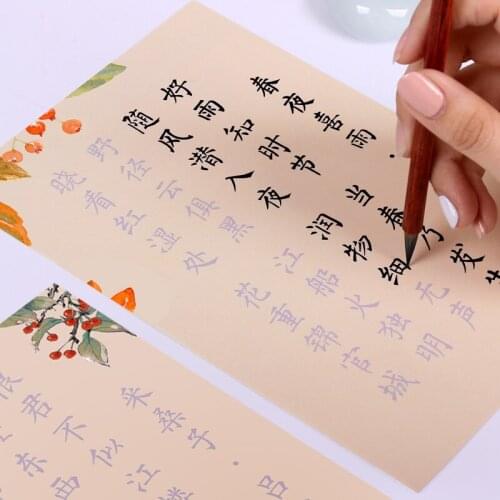 春夜喜雨·
好雨知时节当春乃发生
随风潜入夜润物细无声
野径云俱黑江船火独明
晓看红湿处花重锦官城
采桑子·吕
恨君不似江楼
东西